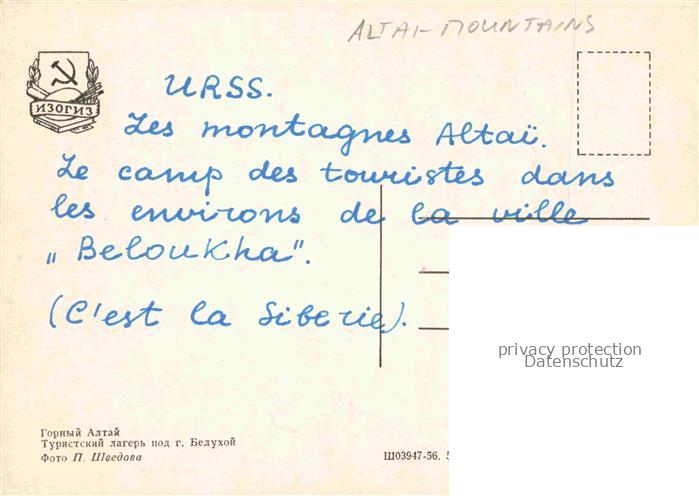 ALTAI-MOUNTAINS
ИЗОГИЗ
URSS.
Les montagnes Altaï.
Le camp des touristes dans
les environs de la ville
„Beloukha".
(C'est la Siberie).
privacy protection
Datenschutz
Горный Алтай
Туристский лагерь под г. Белухой
Фото П. Шведова
Ш03947-56,